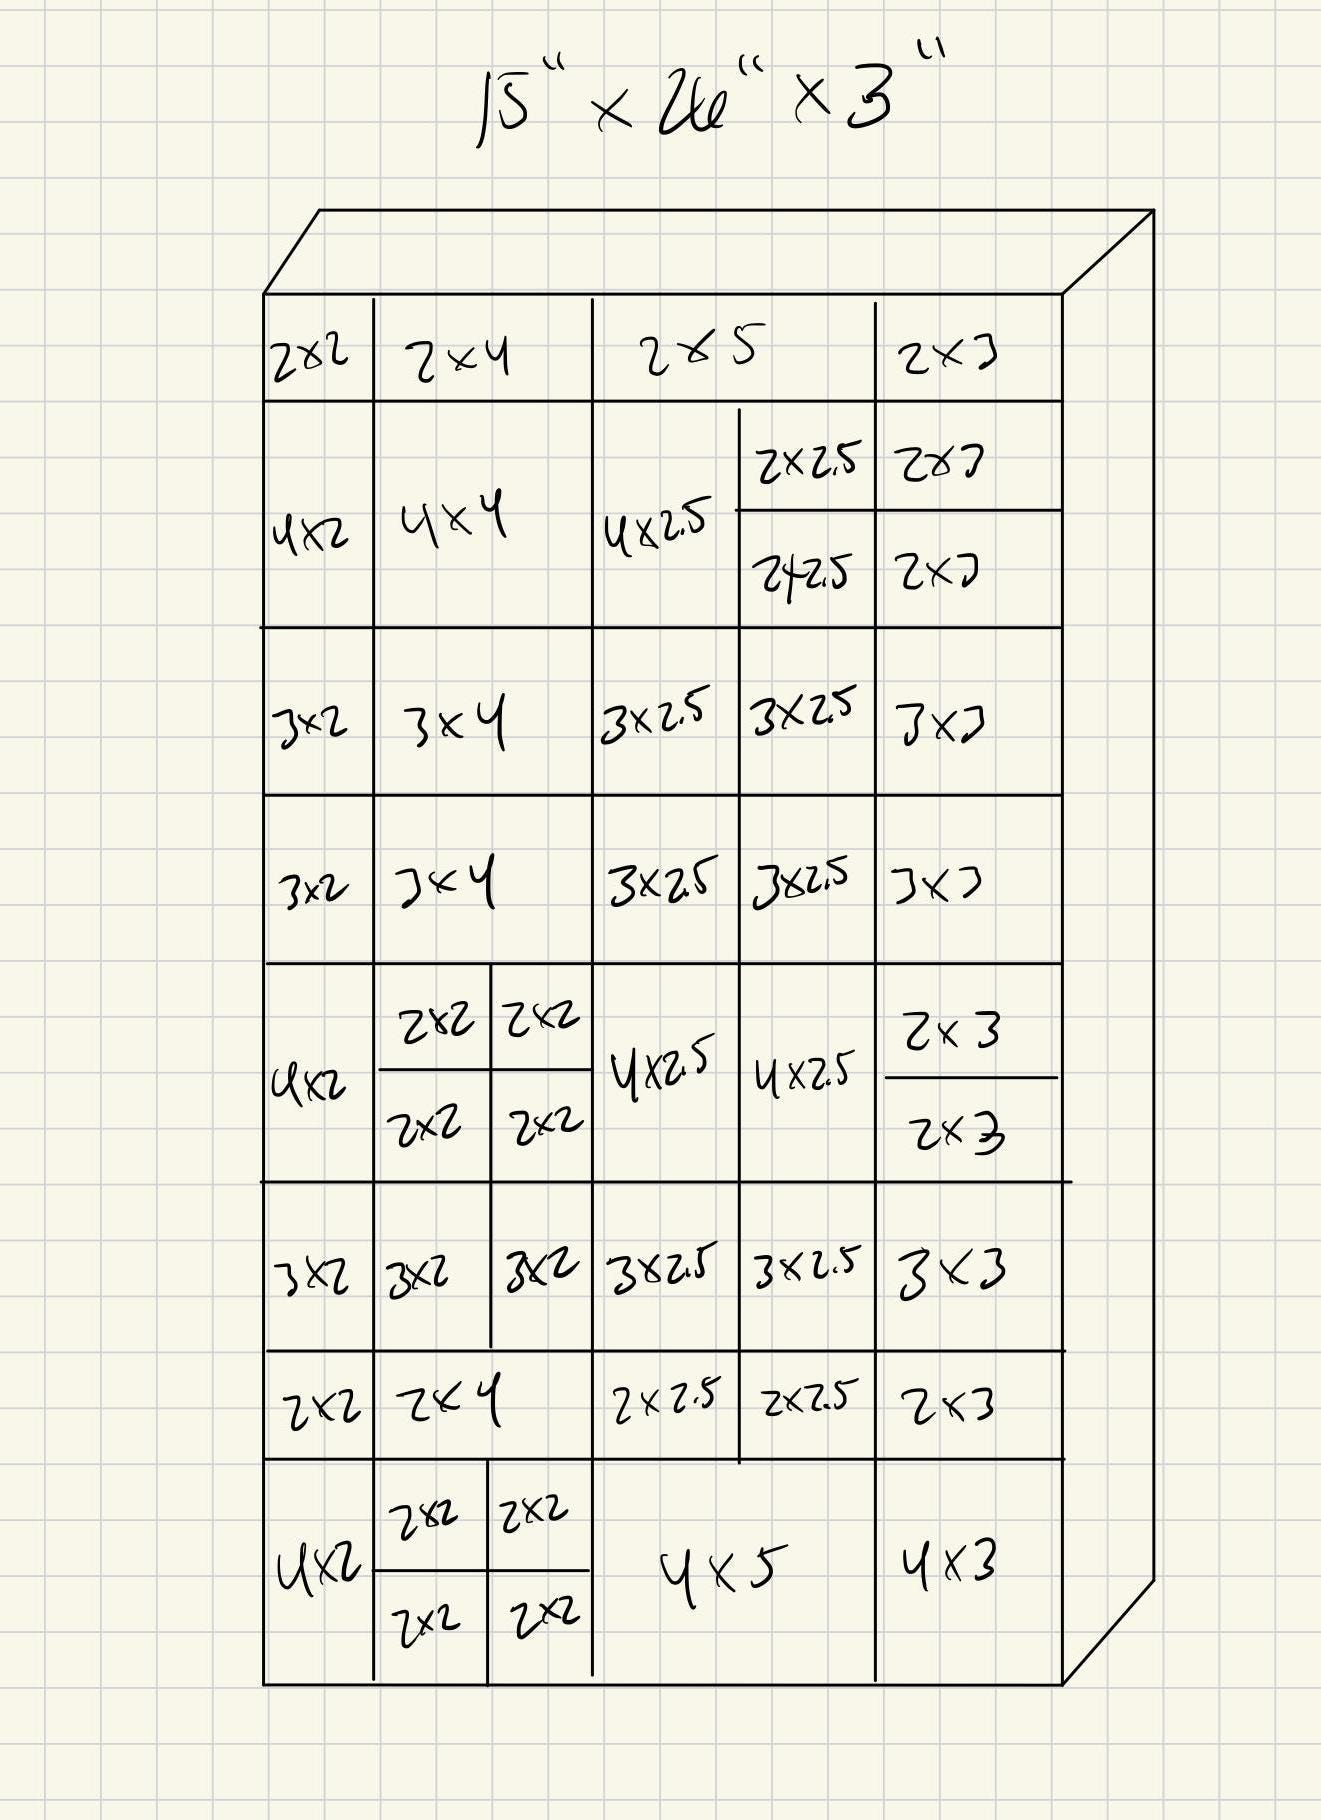 15" x 26" x 3"
2x2 2x4 2x5 2x3
2x2.5 2x3
4x2 4x4 4x2.5
2x2.5 2x3
3x2 3x4 3x2.5 3x2.5 3x3
3x2 3x4 3x2.5 3x2.5 3x3
2x2 2x2 2x3
4x2 4x2.5 4x2.5
2x2 2x2 2x3
3x2 3x2 3x2 3x2.5 3x2.5 3x3
2x2 2x4 2x2.5 2x2.5 2x3
2x2 2x2
4x2 4x5 4x3
2x2 2x2